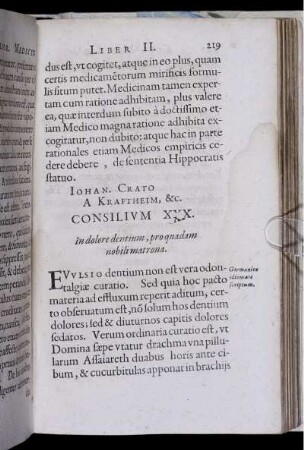 LIBER II. 219
dus est, vt cogitet, atque in eo plus, quam
certis medicamẽtorum mirificis formu-
lis situm putet. Medicinam tamen exper-
tam cum ratione adhibitam, plus valere
ea, quæ interdum subito à doctissimo et-
iam Medico magna ratione adhibita ex-
cogitatur, non dubito: atque hac in parte
rationales etiam Medicos empiricis ce-
dere debere, de sententia Hippocratis
statuo.
IOHAN. CRATO
A KRAFTHEIM, &c.
CONSILIVM
In dolore dentium, pro quadam
nobili matrona.
EVVLSIO dentium non est vera odon-
talgiæ curatio. Sed quia hoc pacto
materia ad effluxum reperit aditum, cer-
to obseruatum est, nõ solum hos dentium
dolores; sed & diuturnos capitis dolores
sedatos. Verum ordinaria curatio est, vt
Domina sæpe vtatur drachma vna pillu-
larum Assaiareth duabus horis ante ci-
bum, & cucurbitulas apponat in brachijs
Germanico
idiomate
scriptum.